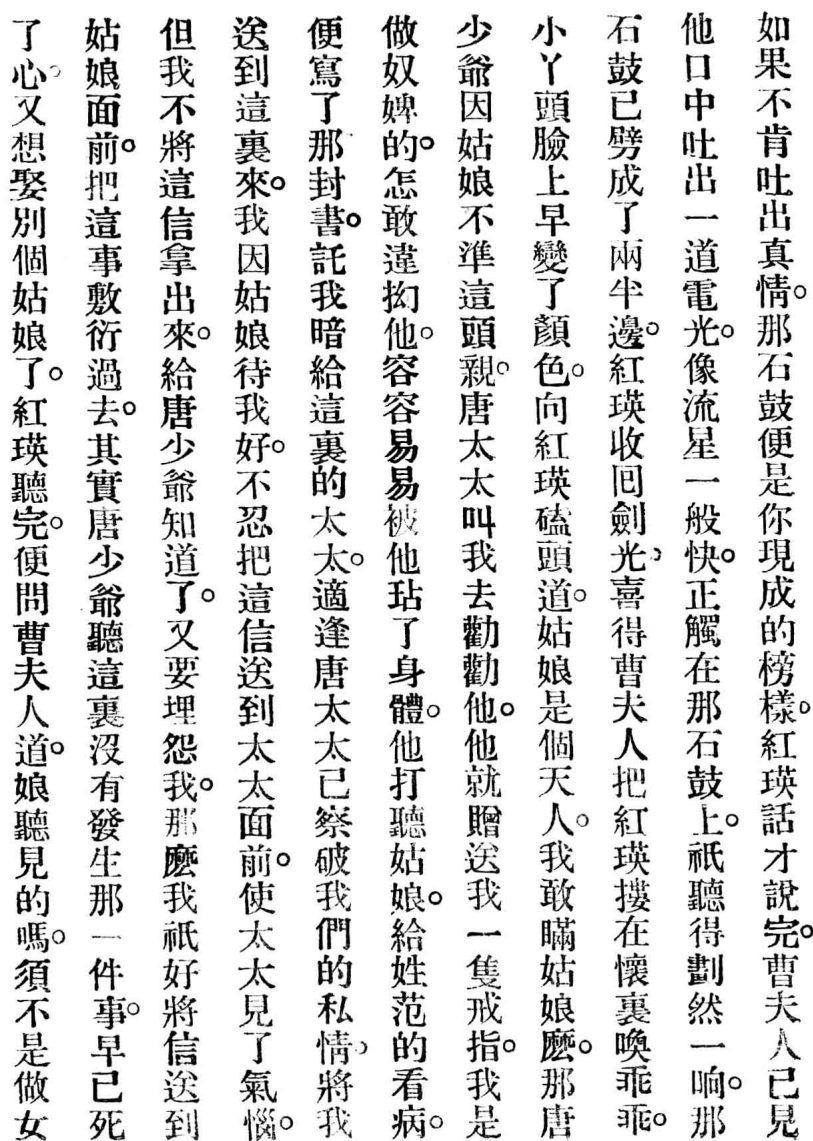 如果不肯吐出真情。那石鼓便是你現成的榜樣。紅瑛話才說完。曹夫人已見
他口中吐出一道電光。像流星一般快。正觸在那石鼓上。祇聽得劃然一响。那
石鼓已劈成了兩半邊。紅瑛收回劍光。喜得曹夫人把紅瑛摟在懷裏喚乖乖。
小丫頭臉上早變了顏色。向紅瑛磕頭道。姑娘是個天人。我敢瞞姑娘麽。那唐
少爺因姑娘不準這頭親。唐太太叫我去勸勸他。他就贈送我一隻戒指。我是
做奴婢的。怎敢違拗他。容容易易被他玷了身體。他打聽姑娘。給姓范的看病。
便寫了那封書。託我暗給這裏的太太。適逢唐太太已察破我們的私情。將我
送到這裏來。我因姑娘待我好。不忍把這信送到太太面前。使太太見了氣惱。
但我不將這信拿出來。給唐少爺知道了。又要埋怨我。那麽我祇好將信送到
姑娘面前。把這事敷衍過去。其實唐少爺聽這裏沒有發生那一件事。早已死
了心。又想娶別個姑娘了。紅瑛聽完。便問曹夫人道。娘聽見的嗎。須不是做女